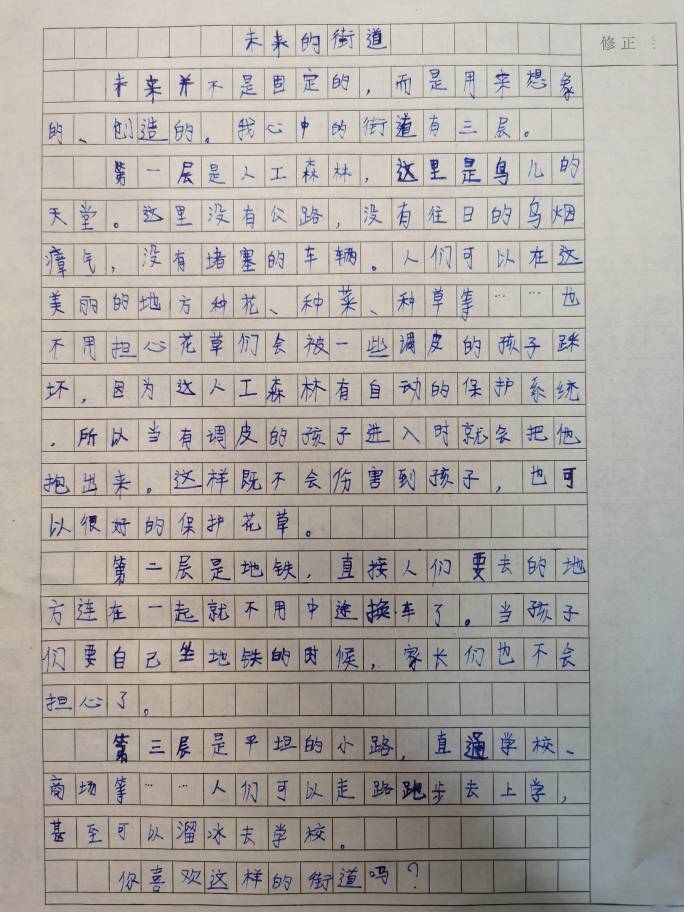 未来的街道
修正
未来并不是固定的，而是用来想象
的、创造的。我心中的街道有三层。
第一层是人工森林，这里是鸟儿的
天堂。这里没有公路，没有往日的乌烟
瘴气，没有堵塞的车辆。人们可以在这
美丽的地方种花、种菜、种草等……也
不用担心花草们会被一些调皮的孩子踩
坏，因为这人工森林有自动的保护系统
，所以当有调皮的孩子进入时就会把他
抱出来。这样既不会伤害到孩子，也可
以很好的保护花草。
第二层是地铁，直接人们要去的地
方连在一起就不用中途换车了。当孩子
们要自己坐地铁的时候，家长们也不会
担心了。
第三层是平坦的小路，直通学校、
商场等……人们可以走路跑步去上学，
甚至可以溜冰去学校。
你喜欢这样的街道吗？